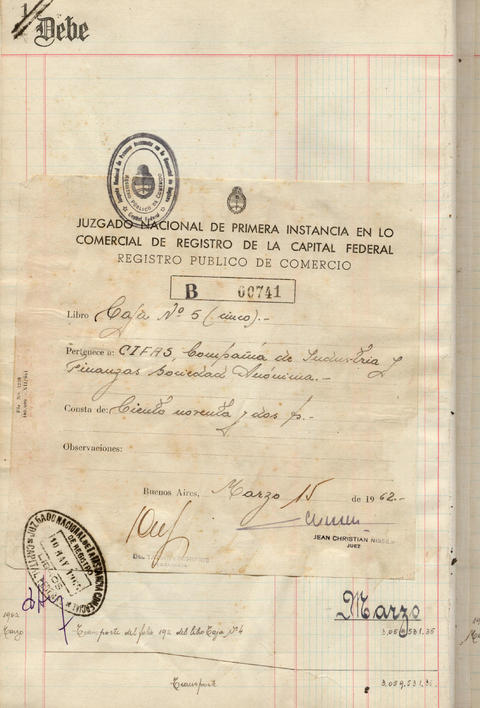 Debe
JUZGADO NACIONAL DE PRIMERA INSTANCIA EN LO
COMERCIAL DE REGISTRO DE LA CAPITAL FEDERAL
REGISTRO PUBLICO DE COMERCIO
B 00741
Libro Caja Nº 5 (cinco).-
Pertenece a: CIFAS, Compañia de Industria y
Finanzas Sociedad Anónima.-
Consta de: Ciento noventa y dos f.-
Observaciones:
Buenos Aires, Marzo 15 de 1962.-
JEAN CHRISTIAN NISSEN
JUEZ
Marzo
1962
Marzo
Transporte del folio 192 del libro Caja Nº 4
3.059.531.35
Transporte
3.059.531.35